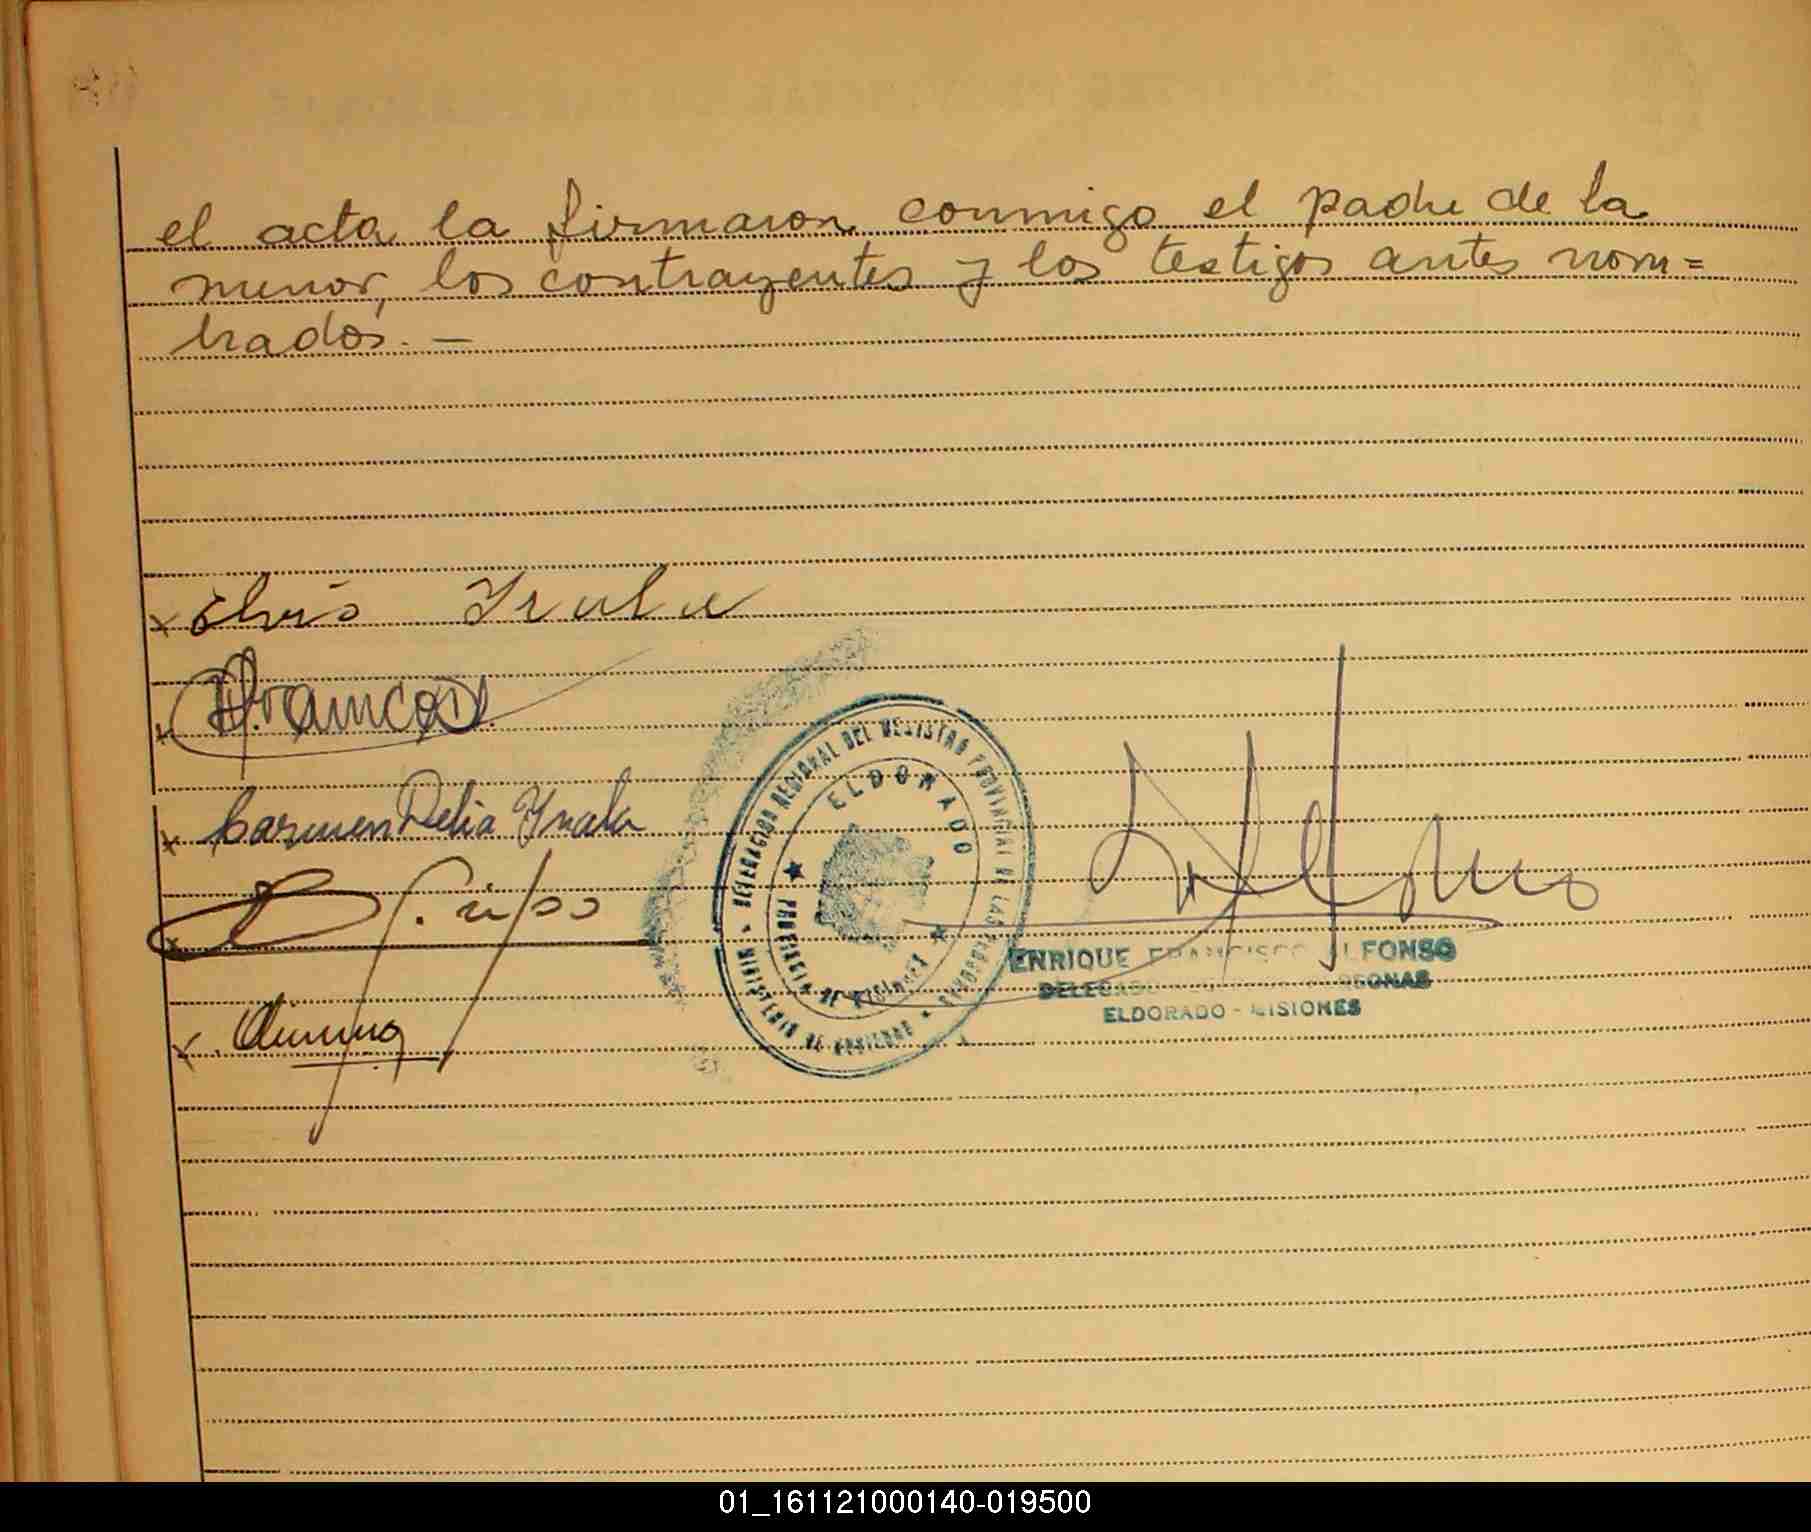 el acta la firmaron conmigo el padre de la
menor, los contrayentes y los testigos antes nom=
brados. —
x Elvio Yrala
x
x Carmen Delia Yrala
x
x
DELEGACION REGIONAL DEL REGISTRO PROVINCIAL DE LAS PERSONAS
MINISTERIO DE GOBIERNO
ELDORADO
PROVINCIA DE MISIONES
Alfonso
ENRIQUE FRANCISCO ALFONSO
ELDORADO - MISIONES
01_161121000140-019500